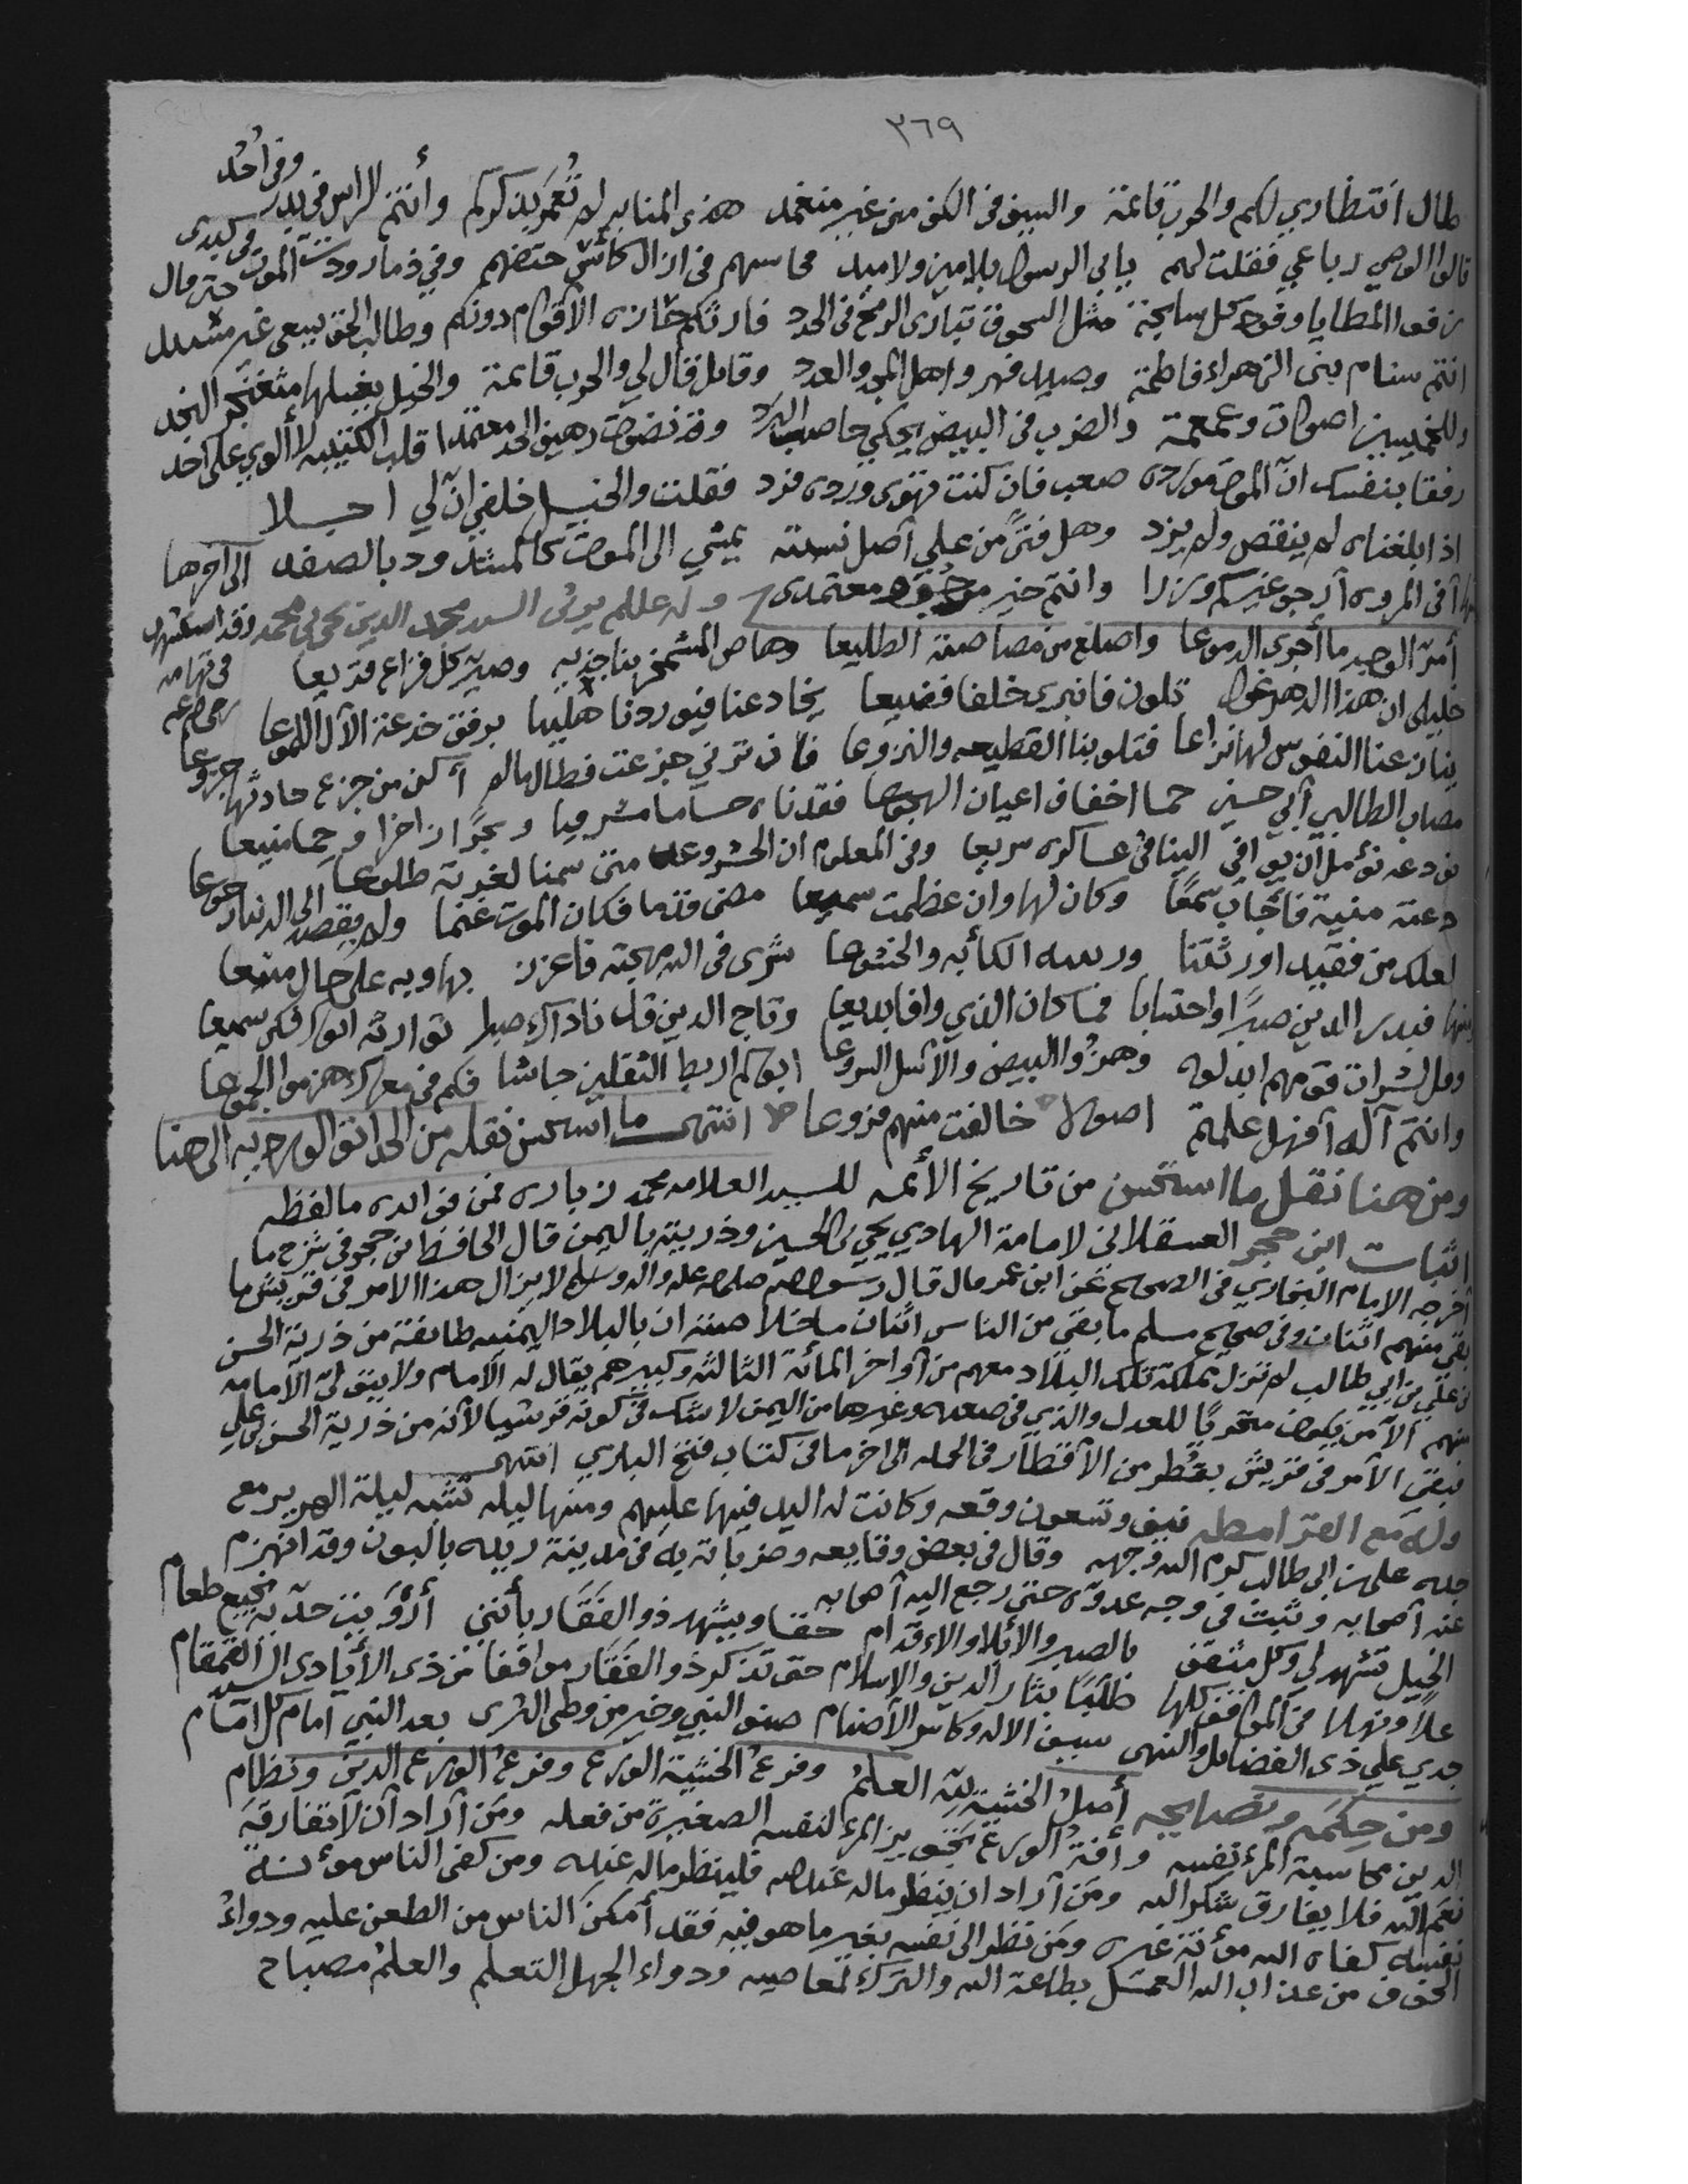 ٣٦٩
طال انتظاري لكم والحرب قائمة والسيف في الكف مني غير منغمد هذي المنابر لم تُعمر بذكركم وأنتم لراس في بدر وفي أحُد
قالوا الوصي رباعي فقلت لهم يا بني الرسول بلا مين ولا محاسهم في ازال كأس حتفهم وفي ذمار ودت الموت في كبدي
المطايا وقود كل سابحة مثل السحوق تبارى الريح في الجدد فارثكم حازه الأقوام دونكم وطالب الحق يبغي غير
انتم سنام بني الزهراء فاطمة وصيد فهر واهل المجد والعدد وقائل قال لي والحرب قائمة والخيل
وللخميسين اصوات وغمغمة والضرب في البيض يحكي حاصب البرد وقد نضوت رهيف الحد معتمدا قلب الكتيبة لا ألوي على أحد
رفقا بنفسك ان الموت مورده صعب فان كنت تهوى ورده فرد فقلت والخيل خلفي انّ لي اجلا
اذا بلغناه لم ينقص ولم يزد وهل فتىً من علي أصل نسبته يمشي الى الموت كالمشدود بالصفد الى اخرها
وانتم خير معتمدي وله عالم يرثي السيد محمد الدين يحيى بن محمد وقد استشهد في تهامه
أمرّ الوجيد ما أجرى الدموعا واضلع من مصاصته الضليعا وهاض المشمخر بناجذيه وصير كل قراع قريعا
خليلي ان هذا الدهر غول تلون فانبرى خلفا فضيعا يخادعنا فيوردنا برفق خدعة الآل اللموعا
ينازعنا النفوس لها نزاعا فتلوبنا القطيعه والنزوعا فان ترني جزعت فطال مالم أكن من جزع حادثها جزوعا
مصاب الطالبي أبي حسين حما اخفاف اعيان الهجوعا فقدناه حساما مشرفيا وبحرًا زاخرا وحما منيعا
نودعه نؤمل أن يوافي الينا في عساكره سريعا وفي المعلوم ان الحشر وعد متى سمنا لغرته طلوعا
دعته منية فأجاب سمعًا وكان لها وان عظمت سميعا مضى قدما فكان الموت غنما ولم يقصد الى الدنيا رجوعا
لعلك من فقيد اورثتنا الكأبه والخشوعا شرى في الله مهجته فاعزز بها وبه على حال مبيعا
منها فبدر الدين صبرًا واحتسابا فما كان الذي وافا بديعا وتاج الدين قل ناداك صبرا توارثه ابوك فكن سميعا
وقل لشرات قومهم ابدلوه وهزُوا البيض والأسل الشروعا ابوكم اربط الثقلين جاشا فكم في معرك هزموا الجموعا
وانتم آله أفهل علمتم اصولا خالفت منهم فروعا انتهى ما استحسن نقله من الحدائق الورديه الى هنا
ومن هنا نقل ما استحسن من تاريخ الأئمه للسيد العلامه محمد زباره فمن فوائده ما لفظه
اثبات ابن حجر العسقلاني لإمامة الهادي يحيى بن الحسين وذريته باليمن قال الحافظ ابن حجر في شرح ما
أخرجه الامام البخاري في الصحيح عن ابن عمر قال قال رسول الله صلى الله عليه واله وسلم لا يزال هذا الامر في قريش ما
بقي منهم اثنان وفي صحيح مسلم ما بقي من الناس اثنان ان بالبلاد اليمنيه طائفة من ذرية الحسن
بن علي بن أبي طالب لم تزل مملكة تلك البلاد معهم من أواخر المائة الثالثه وكبيرهم يقال له الامام ولا يتولى الامامه
منهم الا من يكون متحريًا للعدل والذي في صعده وغيرها من اليمن لا شك في كونه قرشيا لأنه من ذرية الحسن بن علي
فبقي الأمر في قريش بقُطر من الأقطار في الجمله الى اخر ما في كتاب فتح الباري انتهى
وله مع القرامطه نيف وتسعون وقعه وكانت له اليد فيها عليهم ومنها ليله تشبه ليلة الهرير مع
جده علي بن ابي طالب كرم الله وجهه وقال في بعض وقايعه وضرباته في مدينة ريده بالبون وقد انهزم
عنه أصحابه وثبت في وجه عدوّه حتى رجع اليه أصحابه
الخيل تشهد لي وكل مثقف بالصبر والابلاء والاقدام حقا ويشهد ذو الفَقَار بأنني أرْوَيت حدّيه نجيع طغام
علاً ونهلا في المواقف كلها طلبًا بثار الدين والاسلام حتى تذكر ذو الفَقَار مواقفا من ذي الأيادي السيد القمقام
جدي علي ذي الفضائل والنهى سيف الاله وكاسر الأصنام صنو النبي وخير من وطي الثرى بعد النبي امام كل امام
ومن حِكَمه ونصايحه أصلُ الخشية لله العلمُ وفرعُ الخشية الورع وفرعُ الورع الدين ونظام
الدين محاسبة المرء نفسه وآفةُ الورع تجويز المرء لنفسه الصغيرة من فعله ومَن أراد أن لا تفارقه
نعم الله فلا يفارق شكر الله ومَن أراد ان ينظر ماله عند الله فلينظر ما لله عنده ومن كفى الناس مؤنة
نفسه كفاه الله مؤنة غيره ومَن نظر الى نفسه بغير ما هو فيه فقد أمكنَ الناس من الطعن عليه ودواءُ
الخوف من عذاب الله العمل بطاعة الله والترك لمعاصيه ودواء الجهل التعلم والعلمُ مصباح